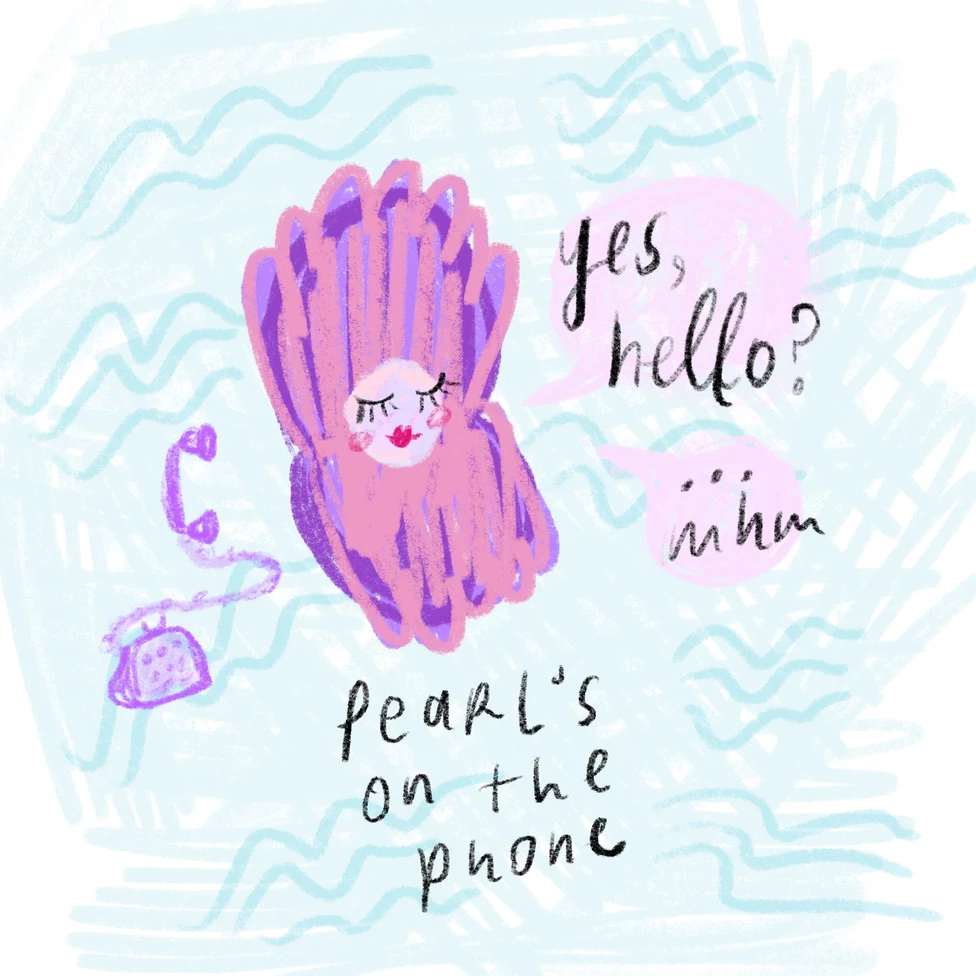 yes,
hello?
...
mhm
pearl's
on the
phone